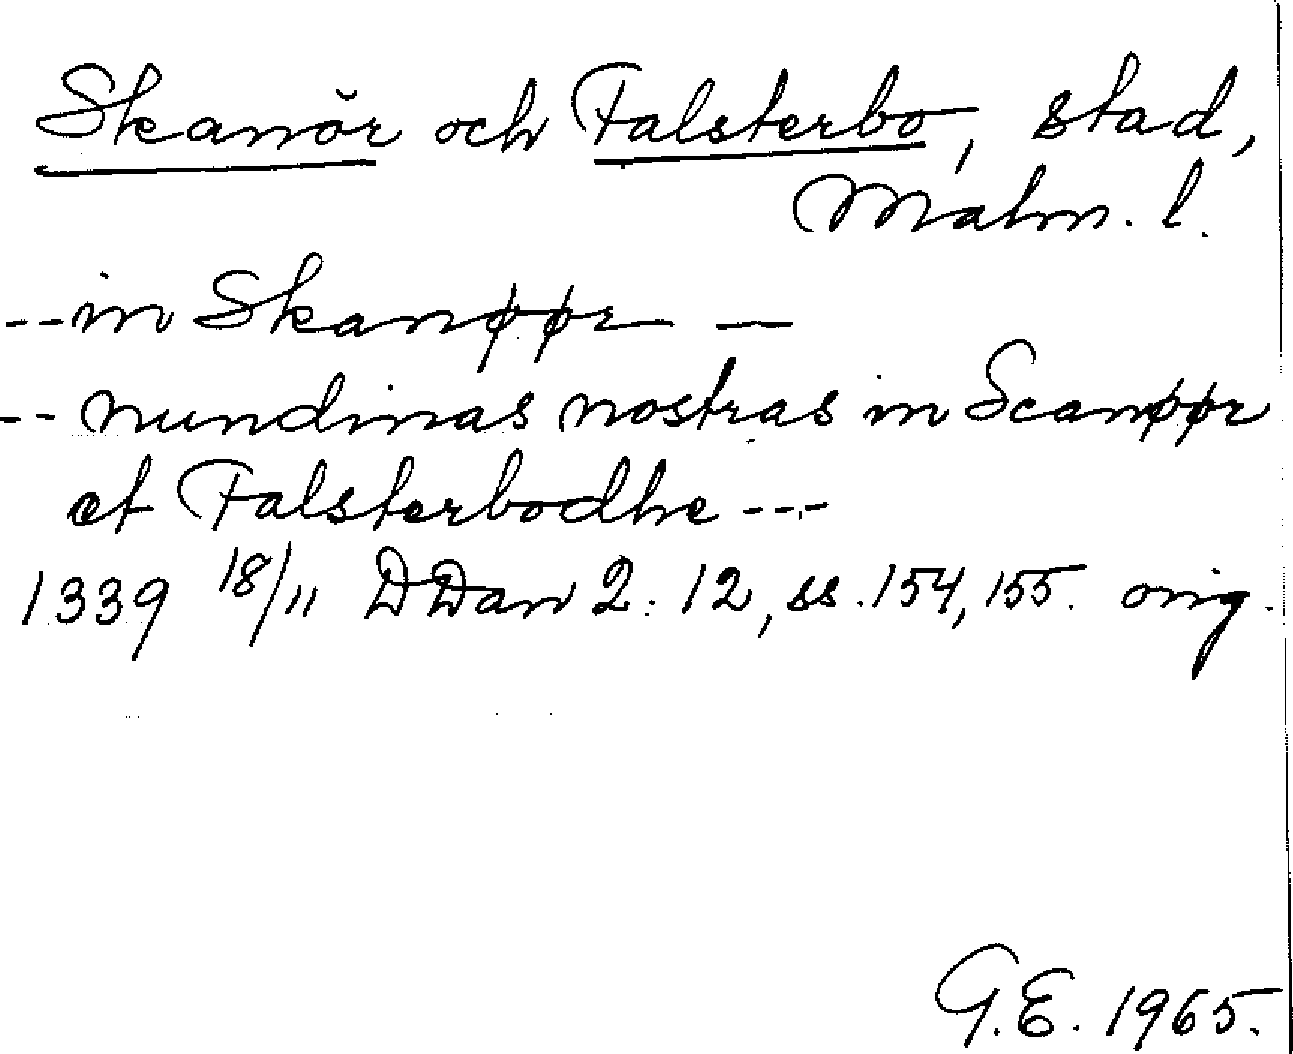 Skanör och Falsterbo, stad,
Malm. l.
-- in Skanøør — —
-- nundinas nostras in Scanøør
et Falsterbodhe ---
1339 18/11 DDan 2: 12, ss. 154, 155. orig.
G.E. 1965.